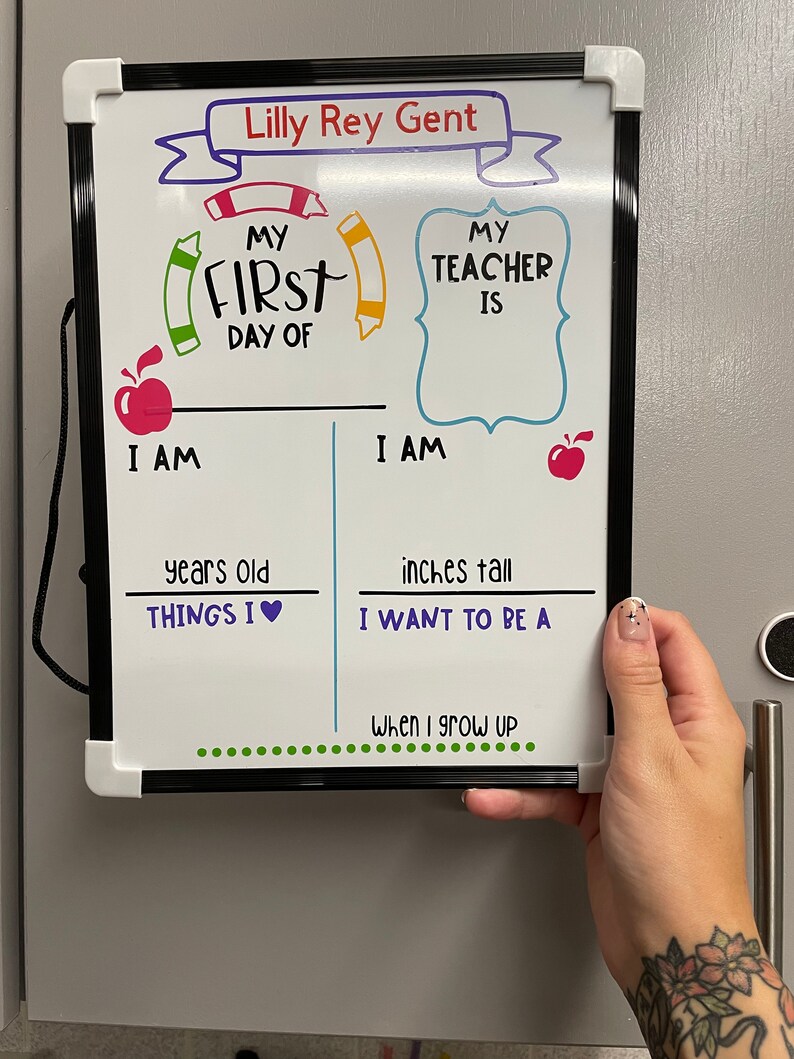 Lilly Rey Gent
MY
FIRST
DAY OF
MY
TEACHER
IS
I AM
years old
I AM
inches tall
THINGS I
I WANT TO BE A
when I grow up